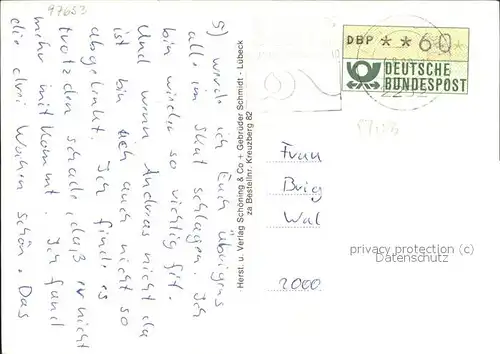 97653
5) werde ich Euch übrigens
alle im Skat schlagen. Ich
bin wieder so richtig fit.
Und wenn Andreas nicht da
ist bin ich auch nicht so
abgelenkt. Ich finde es
trotzdem schade, daß er nicht
mehr mitkommt. Ich fand
die drei Wochen schön. Das
Herst. u. Verlag Schöning & Co + Gebrüder Schmidt - Lübeck
za Bestellnr. Kreuzberg 82
DBP **60
DEUTSCHE
BUNDESPOST
Frau
Brig
Wal
2000
privacy protection (c)
Datenschutz